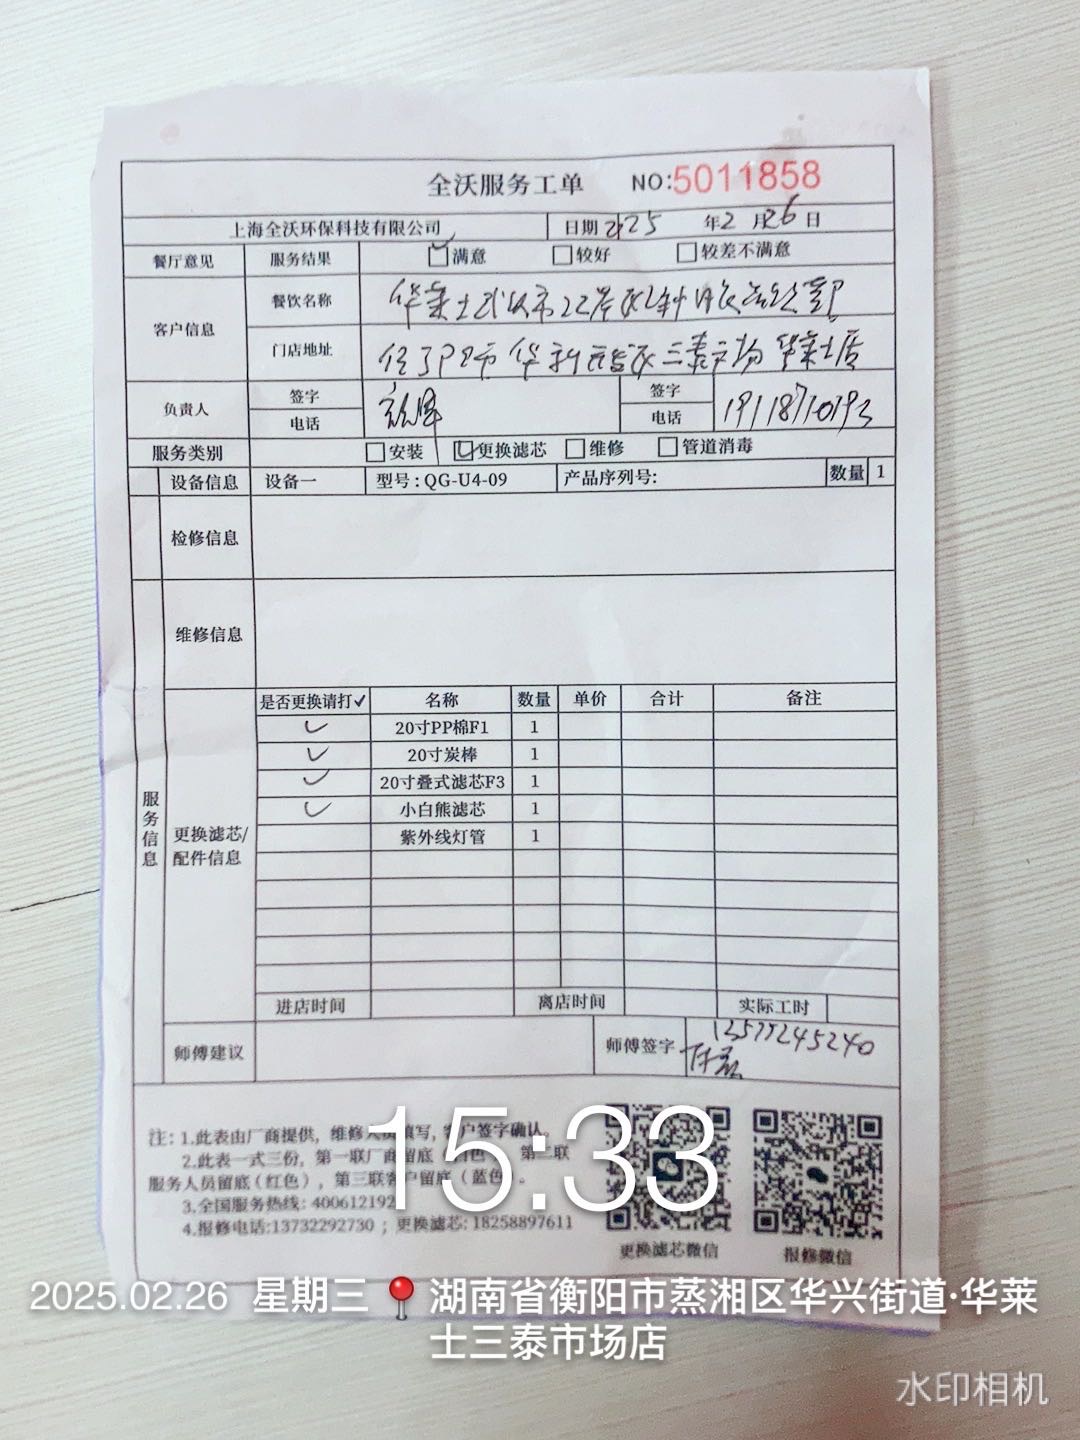 全沃服务工单 NO:5011858
上海全沃环保科技有限公司 日期 2025 年 2 月 26 日
餐厅意见 服务结果 满意 较好 较差不满意
客户信息 餐饮名称 华莱士
门店地址 三泰市场 华莱士店
负责人 签字 签字
电话 电话
服务类别 安装 更换滤芯 维修 管道消毒
设备信息 设备一 型号:QG-U4-09 产品序列号: 数量 1
检修信息
维修信息
服务信息
更换滤芯/
配件信息
是否更换请打✓ 名称 数量 单价 合计 备注
✓ 20寸PP棉F1 1
✓ 20寸炭棒 1
✓ 20寸叠式滤芯F3 1
✓ 小白熊滤芯 1
紫外线灯管 1
进店时间 离店时间 实际工时
师傅建议 师傅签字
注: 1.此表由厂商提供, 维修人员填写, 客户签字确认。
2.此表一式三份, 第一联厂商留底 第二联
服务人员留底(红色), 第三联客户留底(蓝色)。
3.全国服务热线: 400612192
4.报修电话:13732292730 ; 更换滤芯: 18258897611
更换滤芯微信 报修微信
15:33
2025.02.26 星期三 湖南省衡阳市蒸湘区华兴街道·华莱
士三泰市场店
水印相机